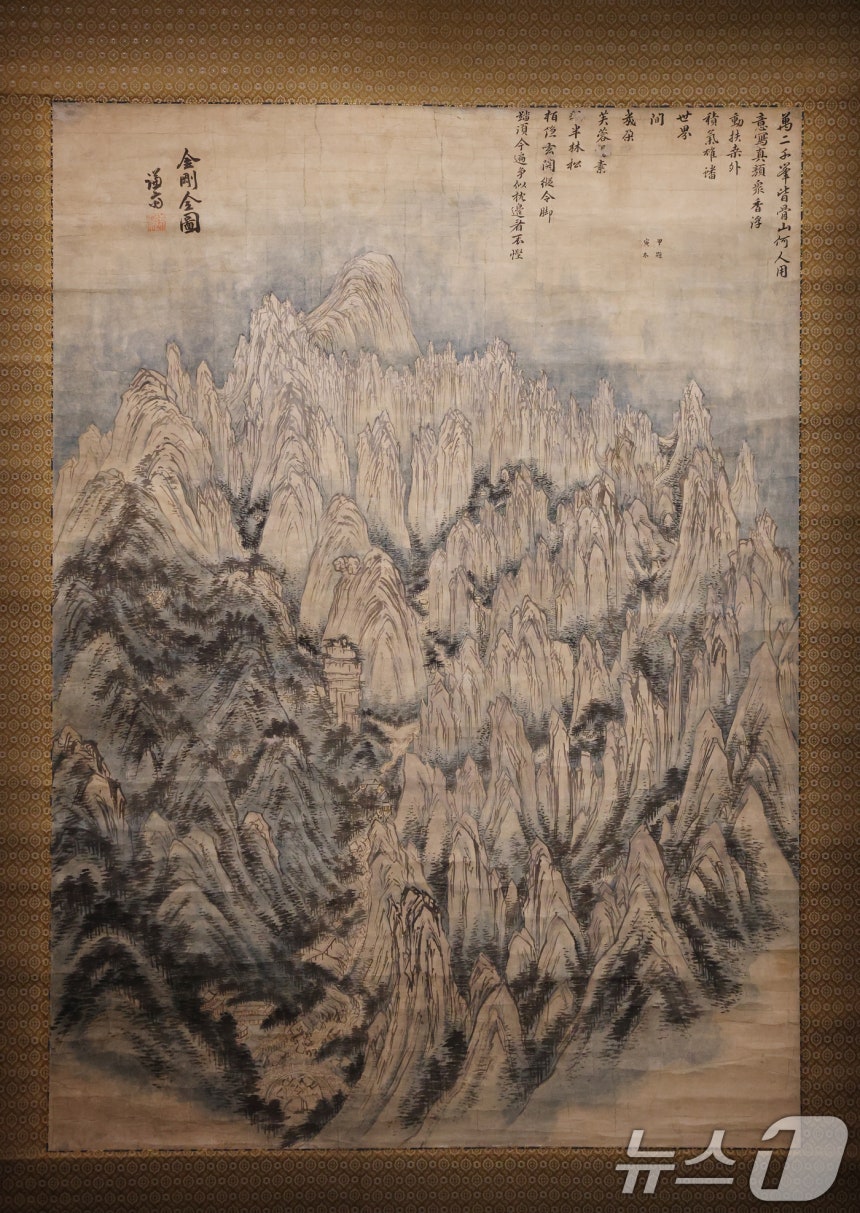 萬二千峯皆骨山何人用
意寫真顔衆香浮
動扶桑外
積氣雄蟠
世界
間
幾朶
芙蓉揚素
彩半林松
柏隱玄關縱令脚
踏須今遍爭似枕邊看不慳
甲寅
冬題
金剛全圖
謙齋
뉴스1